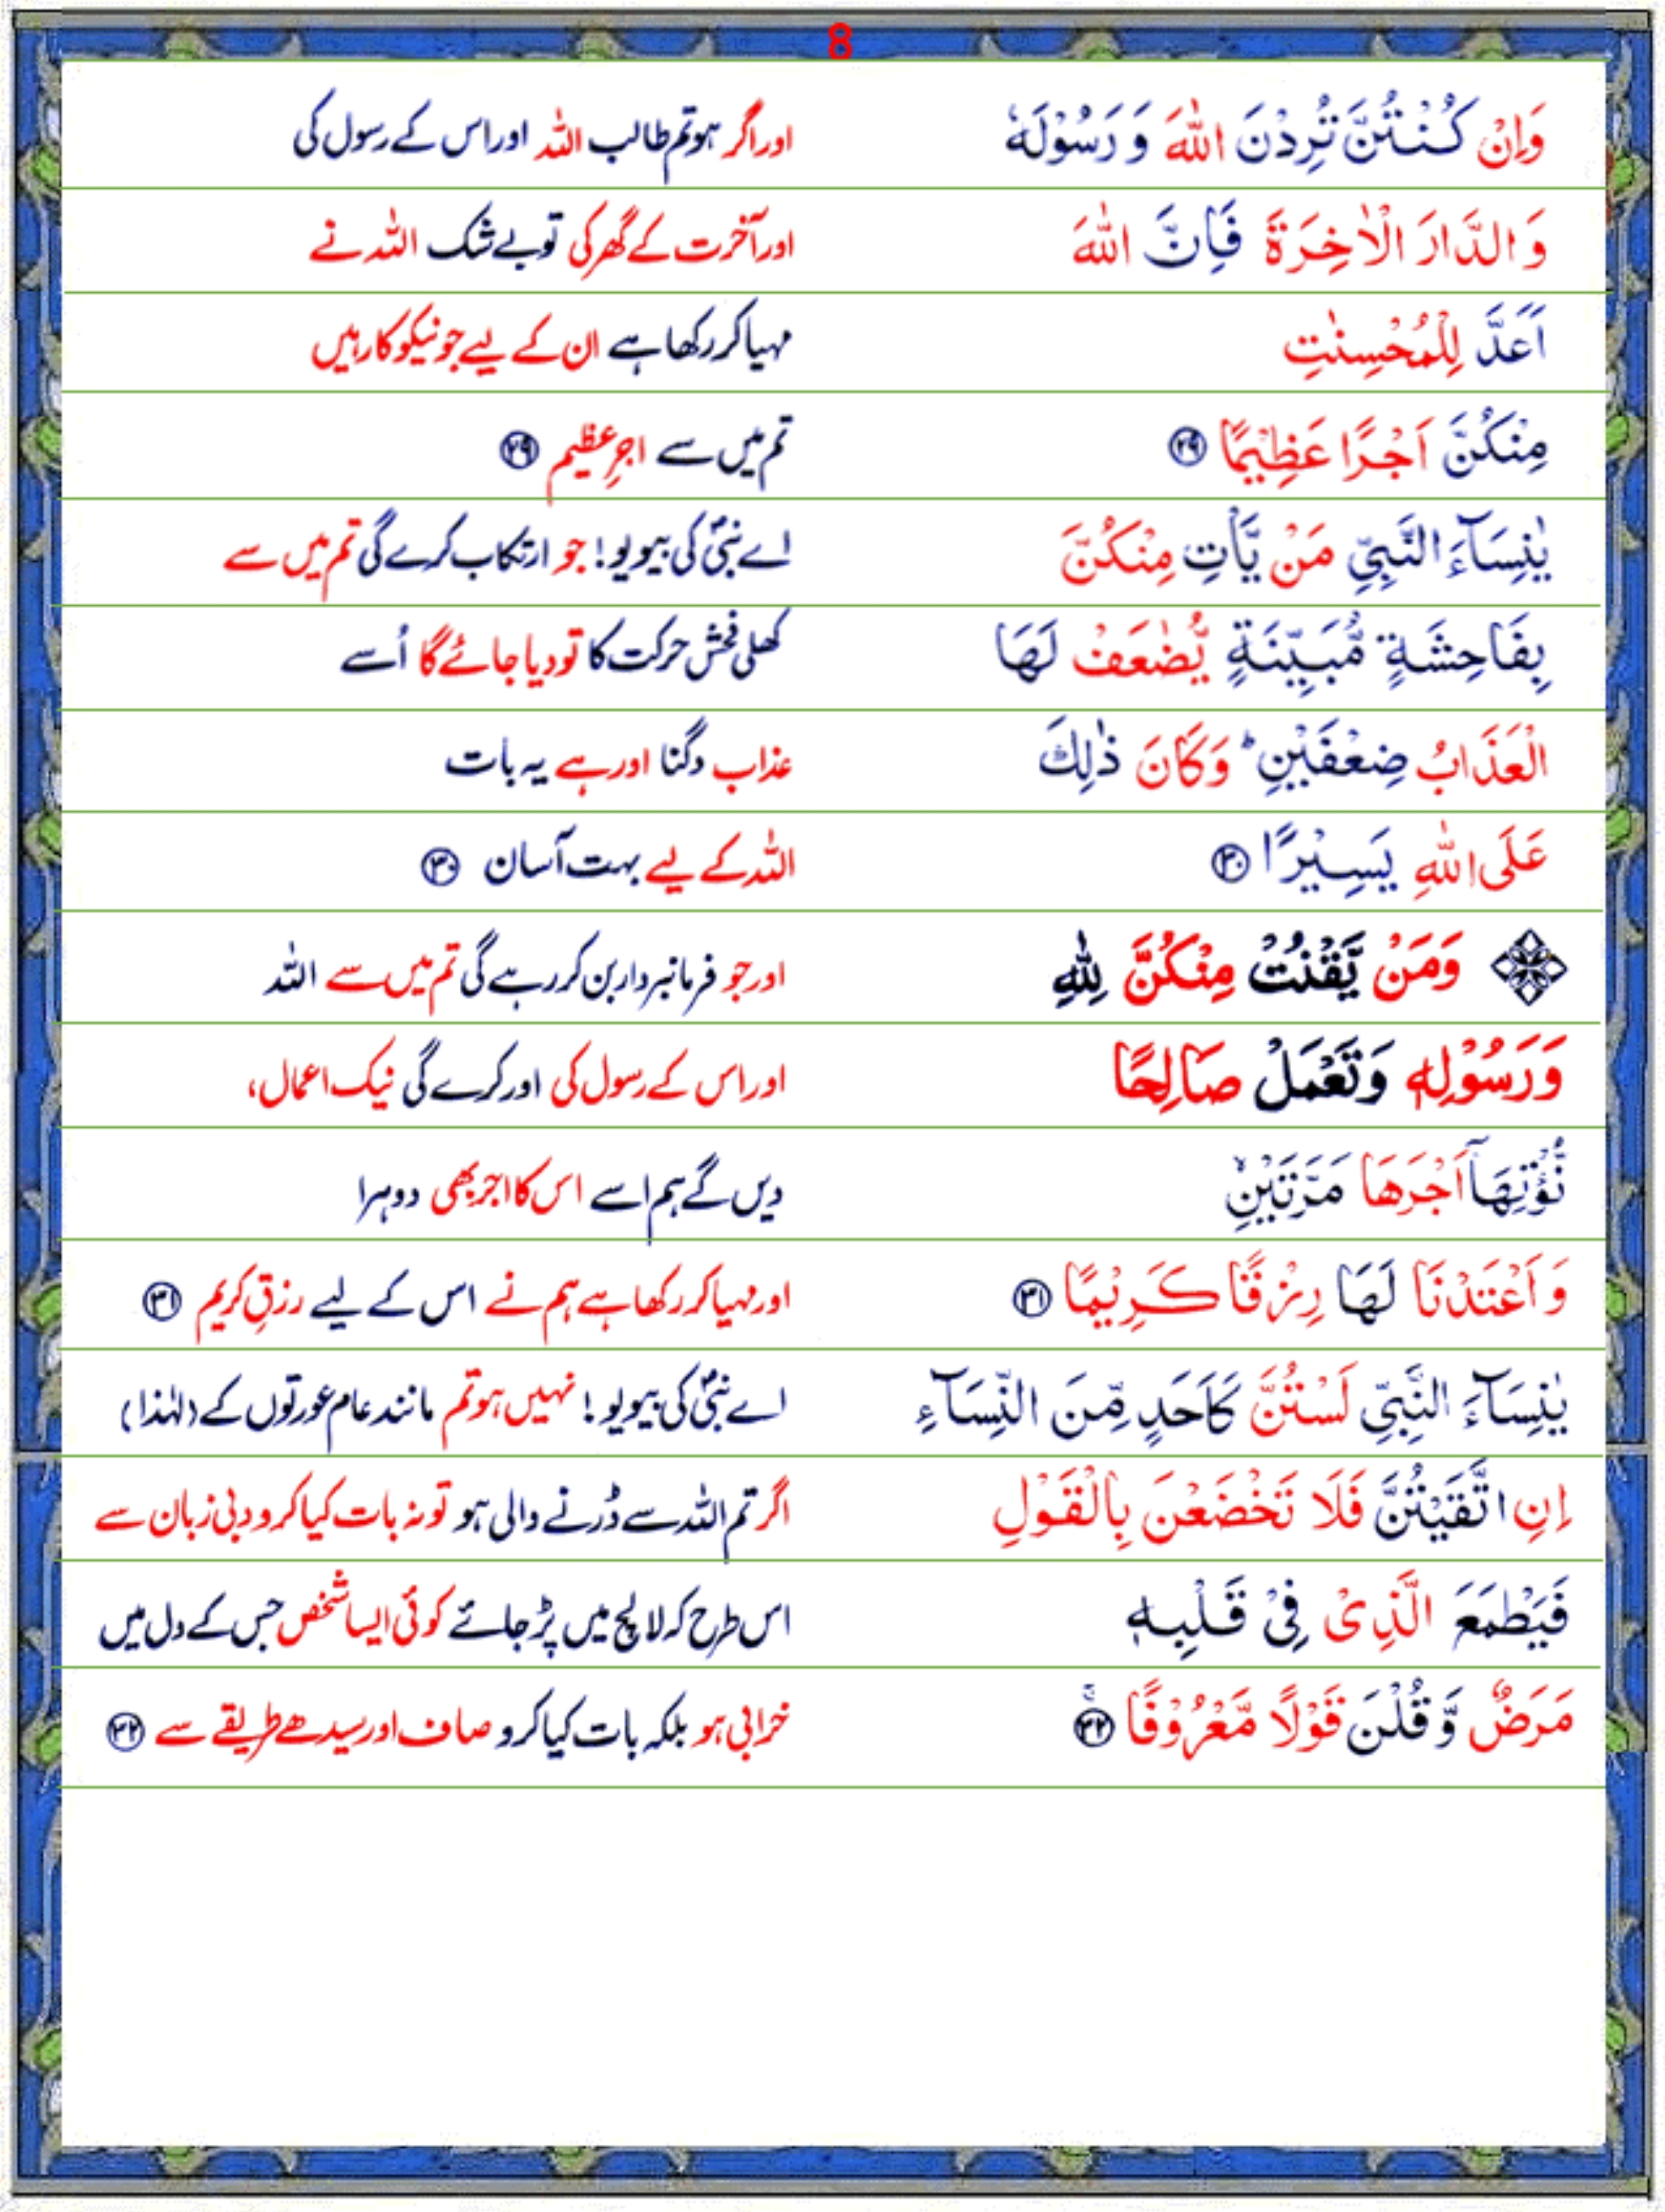 8
وَاِنْ كُنْتُنَّ تُرِدْنَ اللّٰهَ وَ رَسُوْلَهٗ اوراگر ہوتم طالب اللہ اوراس کے رسول کی
وَ الدَّارَ الْاٰخِرَةَ فَاِنَّ اللّٰهَ اورآخرت کے گھر کی توبے شک اللہ نے
اَعَدَّ لِلْمُحْسِنٰتِ مہیاکررکھا ہے ان کے لیے جو نیکوکارہیں
مِنْكُنَّ اَجْرًا عَظِيْمًا ۲۹ تم میں سے اجرِعظیم ۲۹
يٰنِسَآءَ النَّبِيِّ مَنْ يَّاْتِ مِنْكُنَّ اے نبیؐ کی بیویو! جو ارتکاب کرے گی تم میں سے
بِفَاحِشَةٍ مُّبَيِّنَةٍ يُّضٰعَفْ لَهَا کھلی فحش حرکت کا تودیاجائے گا اُسے
الْعَذَابُ ضِعْفَيْنِ ؕ وَكَانَ ذٰلِكَ عذاب دگنا اورہے یہ بات
عَلَى اللّٰهِ يَسِيْرًا ۳۰ اللہ کے لیے بہت آسان ۳۰
وَمَنْ يَّقْنُتْ مِنْكُنَّ لِلّٰهِ اورجو فرمانبرداربن کررہے گی تم میں سے اللہ
وَرَسُوْلِهٖ وَتَعْمَلْ صَالِحًا اوراس کے رسول کی اورکرے گی نیک اعمال،
نُّؤْتِهَاۤ اَجْرَهَا مَرَّتَيْنِۙ دیں گے ہم اسے اس کااجربھی دوہرا
وَ اَعْتَدْنَا لَهَا رِزْقًا كَرِيْمًا ۳۱ اورمہیاکررکھاہے ہم نے اس کے لیے رزقِ کریم ۳۱
يٰنِسَآءَ النَّبِيِّ لَسْتُنَّ كَاَحَدٍ مِّنَ النِّسَآءِ اے نبیؐ کی بیویو! نہیں ہوتم مانند عام عورتوں کے (لہٰذا)
اِنِ اتَّقَيْتُنَّ فَلَا تَخْضَعْنَ بِالْقَوْلِ اگر تم اللہ سے ڈرنے والی ہو تونہ بات کیاکرو دبی زبان سے
فَيَطْمَعَ الَّذِىْ فِىْ قَلْبِهٖ اس طرح کہ لالچ میں پڑجائے کوئی ایسا شخص جس کے دل میں
مَرَضٌ وَّقُلْنَ قَوْلًا مَّعْرُوْفًا ۳۲ۚ خرابی ہو بلکہ بات کیاکرو صاف اورسیدھے طریقے سے ۳۲